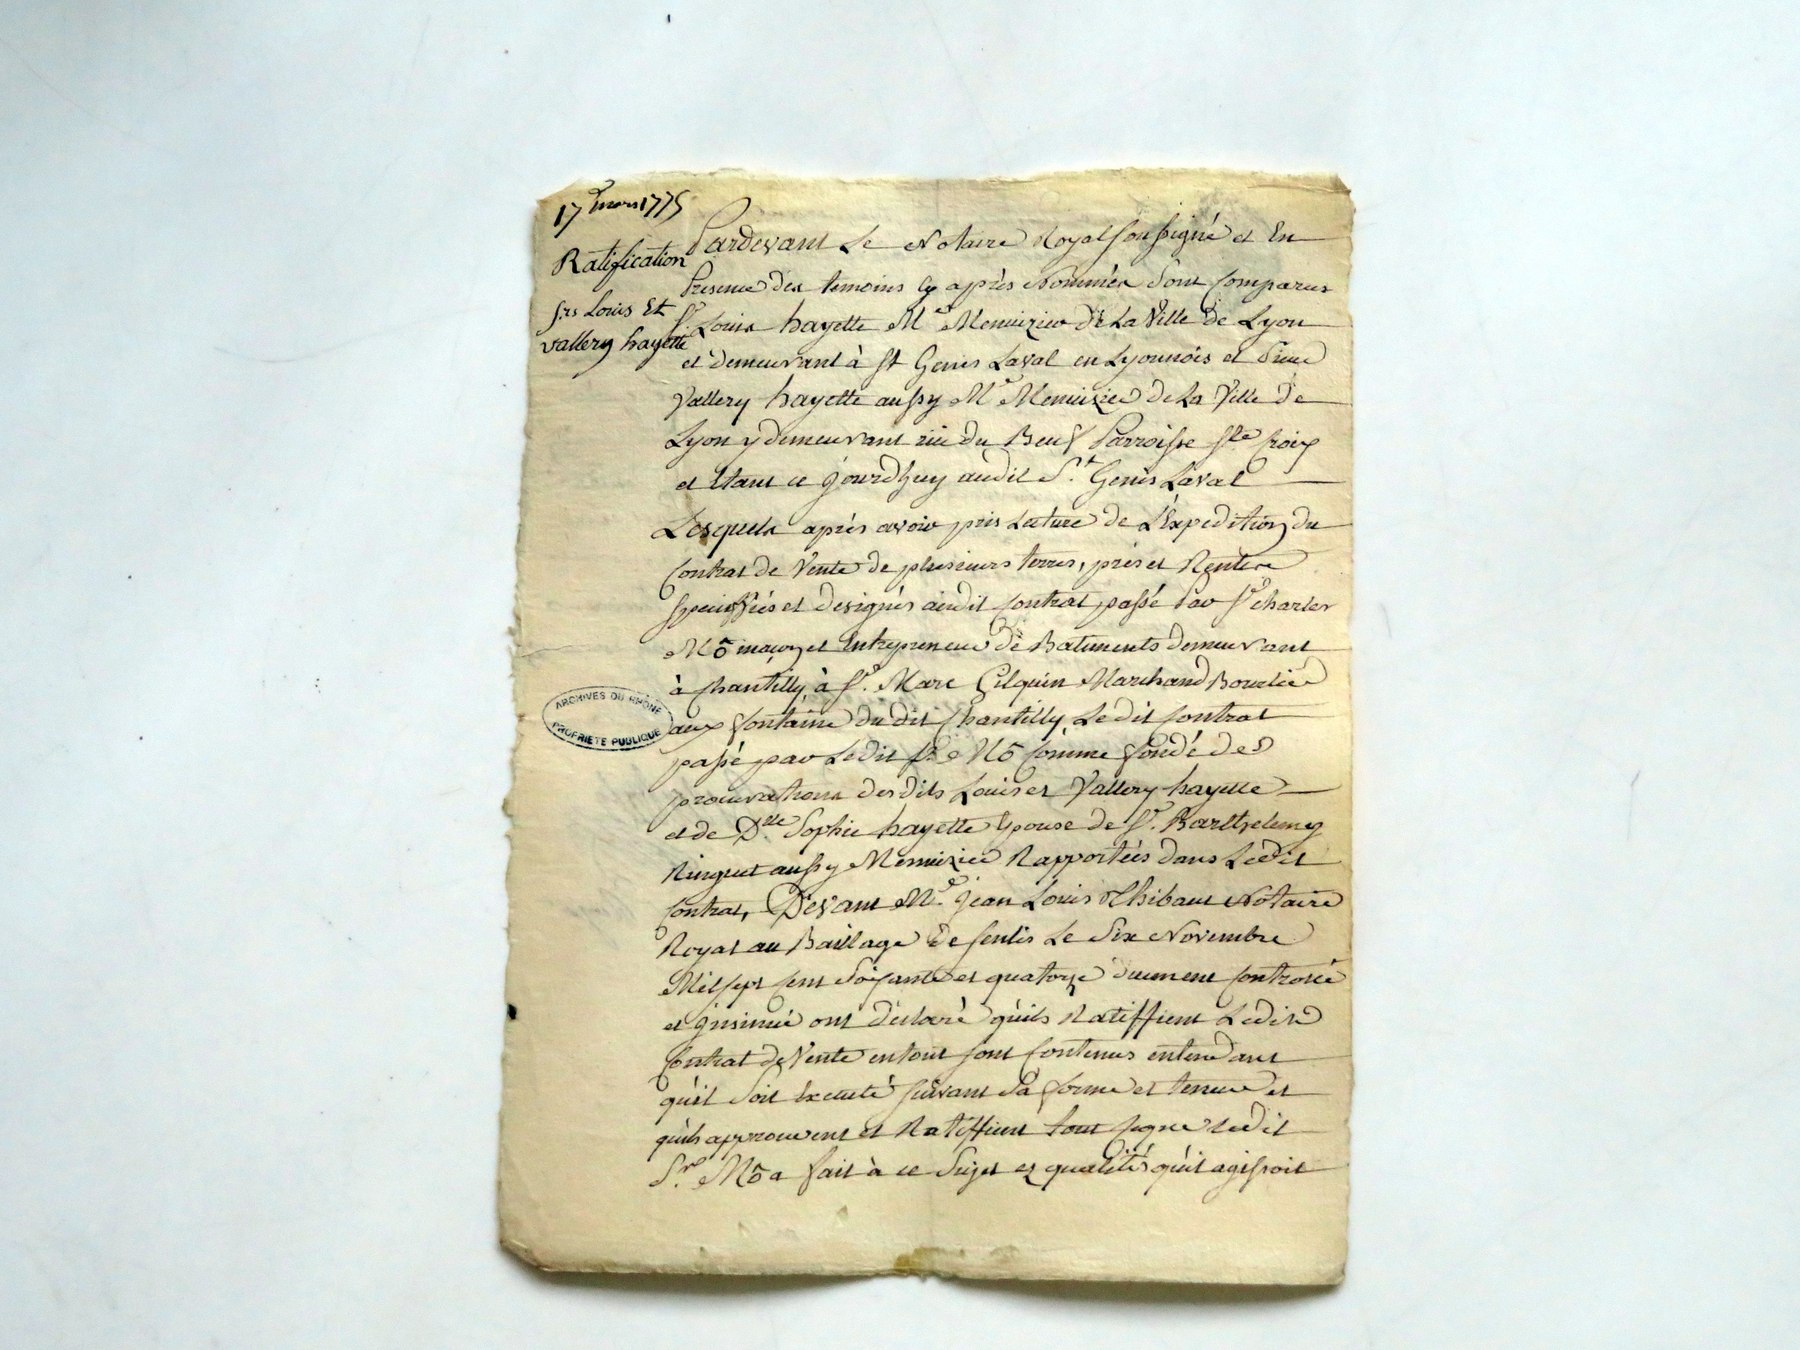 17 mars 1775
Ratification
srs Louis Et
vallery hayette
Pardevant Le Notaire Royal soussigné et En
Presence des temoins cy après Nommés Sont Comparus
Sr. Louis hayette Me Menuizier de La Ville de Lyon
et demeurant à St Genis Laval en Lyonnois et Sieur
Vallery hayette aussy Me Menuizier de La Ville de
Lyon y demeurant rüe du Beuf Parroisse Ste Croix
et Etant ce jourdhuy audit St. Genis Laval
Lesquels après avoir pris Lecture de L'Expedition du
Contrat de Vente de plusieurs terres, prés et Rentes
speciffiés et designés audit Contrat passé Par Sr Charles
Mõ maçon et Entrepreneur de Batiments demeurant
à Chantilly, à Sr. Marc Gilquin Marchand Bourlier
aux fontaine du dit Chantilly Ledit Contrat
passé par Ledit Sr. Mõ Comme fondé des
procurations desdits Louis et Vallery hayette
et de Dlle Sophie hayette Epouse de Sr. Barthelemy
Ringuet aussy Menuizier Rapportées dans Ledit
Contrat, Devant Me. Jean Louis Thibaut Notaire
Royal au Baillage de Senlis Le Six Novembre
Mil sept Cent Soixante et quatorze duement Controlé
et jnsinué ont déclaré qu'ils Ratiffient Ledit
Contrat de Vente en tout son Contenus entendant
qu'il Soit Executé suivant Sa forme et teneur et
qu'ils approuvent et Ratiffient tout ce que Ledit
Sr. Mõ a fait à ce Sujet es qualités qu'il agissoit
ARCHIVES DU RHÔNE
PROPRIETE PUBLIQUE